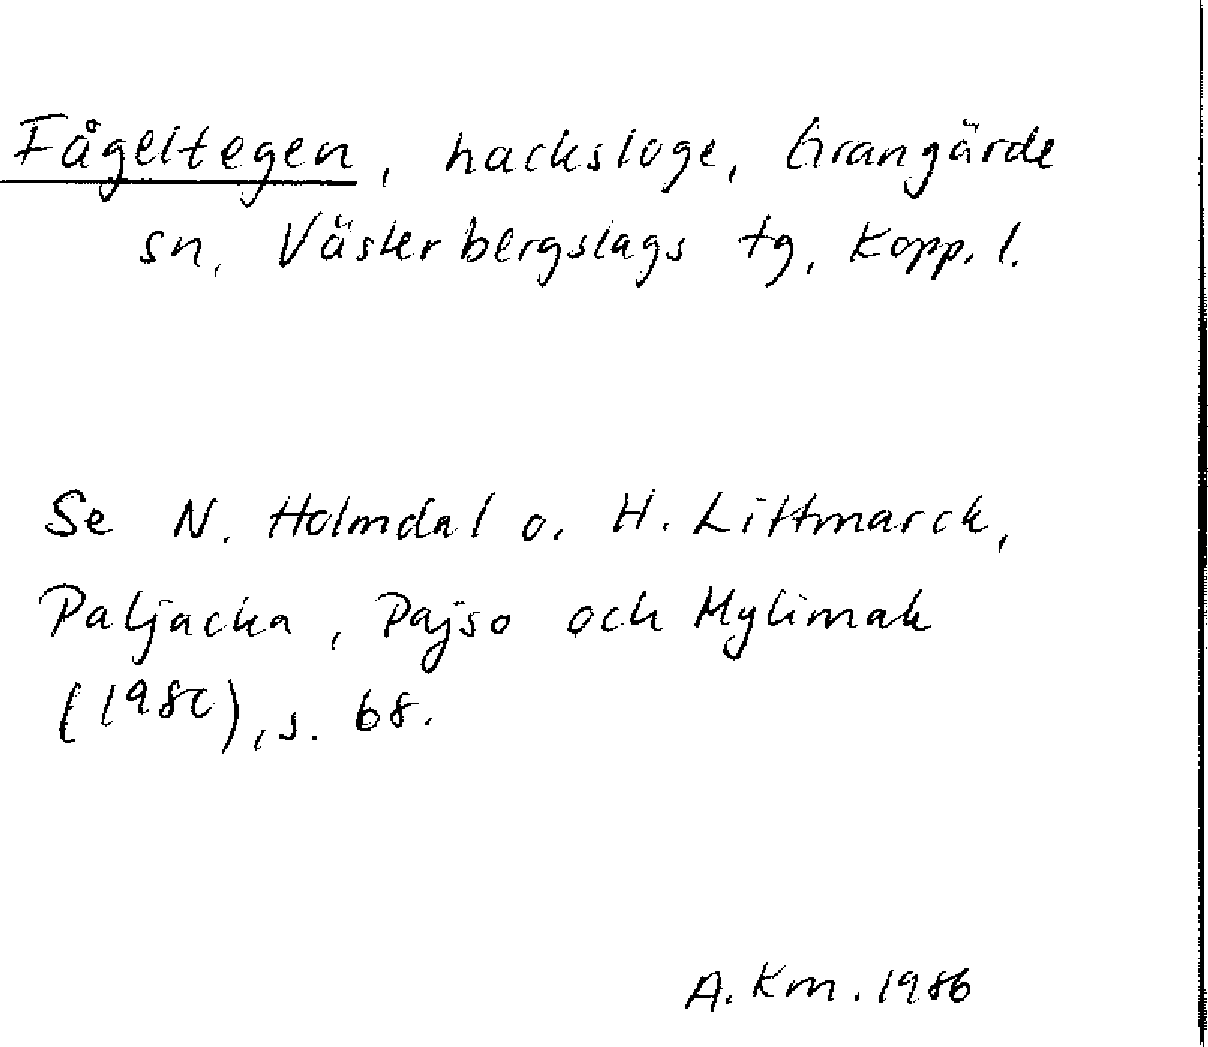 Fågeltegen, hacksloge, Grangärde
sn, Västerbergslags tg, Kopp. l.
Se N. Holmdal o. H. Littmarck,
Paljacka, Pajso och Mylimak
(1980), s. 68.
A. Km. 1986